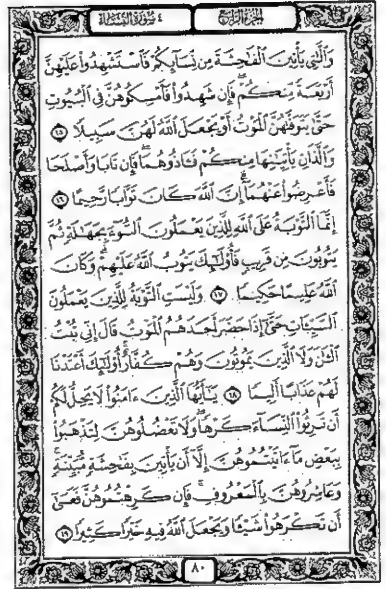 الجزء الرابع ٤ سورة النساء
وَٱلَّٰتِى يَأْتِينَ ٱلْفَٰحِشَةَ مِن نِّسَآئِكُمْ فَٱسْتَشْهِدُوا۟ عَلَيْهِنَّ
أَرْبَعَةً مِّنكُمْ ۖ فَإِن شَهِدُوا۟ فَأَمْسِكُوهُنَّ فِى ٱلْبُيُوتِ
حَتَّىٰ يَتَوَفَّىٰهُنَّ ٱلْمَوْتُ أَوْ يَجْعَلَ ٱللَّهُ لَهُنَّ سَبِيلًا ١٥
وَٱلَّذَانِ يَأْتِيَٰنِهَا مِنكُمْ فَـَٔاذُوهُمَا ۖ فَإِن تَابَا وَأَصْلَحَا
فَأَعْرِضُوا۟ عَنْهُمَآ ۗ إِنَّ ٱللَّهَ كَانَ تَوَّابًا رَّحِيمًا ١٦
إِنَّمَا ٱلتَّوْبَةُ عَلَى ٱللَّهِ لِلَّذِينَ يَعْمَلُونَ ٱلسُّوٓءَ بِجَهَٰلَةٍ ثُمَّ
يَتُوبُونَ مِن قَرِيبٍ فَأُو۟لَٰٓئِكَ يَتُوبُ ٱللَّهُ عَلَيْهِمْ ۗ وَكَانَ
ٱللَّهُ عَلِيمًا حَكِيمًا ١٧ وَلَيْسَتِ ٱلتَّوْبَةُ لِلَّذِينَ يَعْمَلُونَ
ٱلسَّيِّـَٔاتِ حَتَّىٰٓ إِذَا حَضَرَ أَحَدَهُمُ ٱلْمَوْتُ قَالَ إِنِّى تُبْتُ
ٱلْـَٰٔنَ وَلَا ٱلَّذِينَ يَمُوتُونَ وَهُمْ كُفَّارٌ ۚ أُو۟لَٰٓئِكَ أَعْتَدْنَا
لَهُمْ عَذَابًا أَلِيمًا ١٨ يَٰٓأَيُّهَا ٱلَّذِينَ ءَامَنُوا۟ لَا يَحِلُّ لَكُمْ
أَن تَرِثُوا۟ ٱلنِّسَآءَ كَرْهًا ۖ وَلَا تَعْضُلُوهُنَّ لِتَذْهَبُوا۟
بِبَعْضِ مَآ ءَاتَيْتُمُوهُنَّ إِلَّآ أَن يَأْتِينَ بِفَٰحِشَةٍ مُّبَيِّنَةٍ ۚ
وَعَاشِرُوهُنَّ بِٱلْمَعْرُوفِ ۚ فَإِن كَرِهْتُمُوهُنَّ فَعَسَىٰٓ
أَن تَكْرَهُوا۟ شَيْـًٔا وَيَجْعَلَ ٱللَّهُ فِيهِ خَيْرًا كَثِيرًا ١٩
٨٠